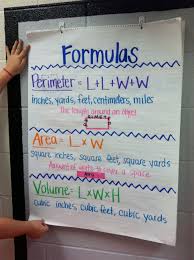 Formulas
Perimeter = L+L+W+W
inches, yards, feet, centimeters, miles
The length around an object
Area = L x W
square inches, square feet, square yards
Amount of units to cover a space
Area
Volume = L x W x H
cubic inches, cubic feet, cubic yards